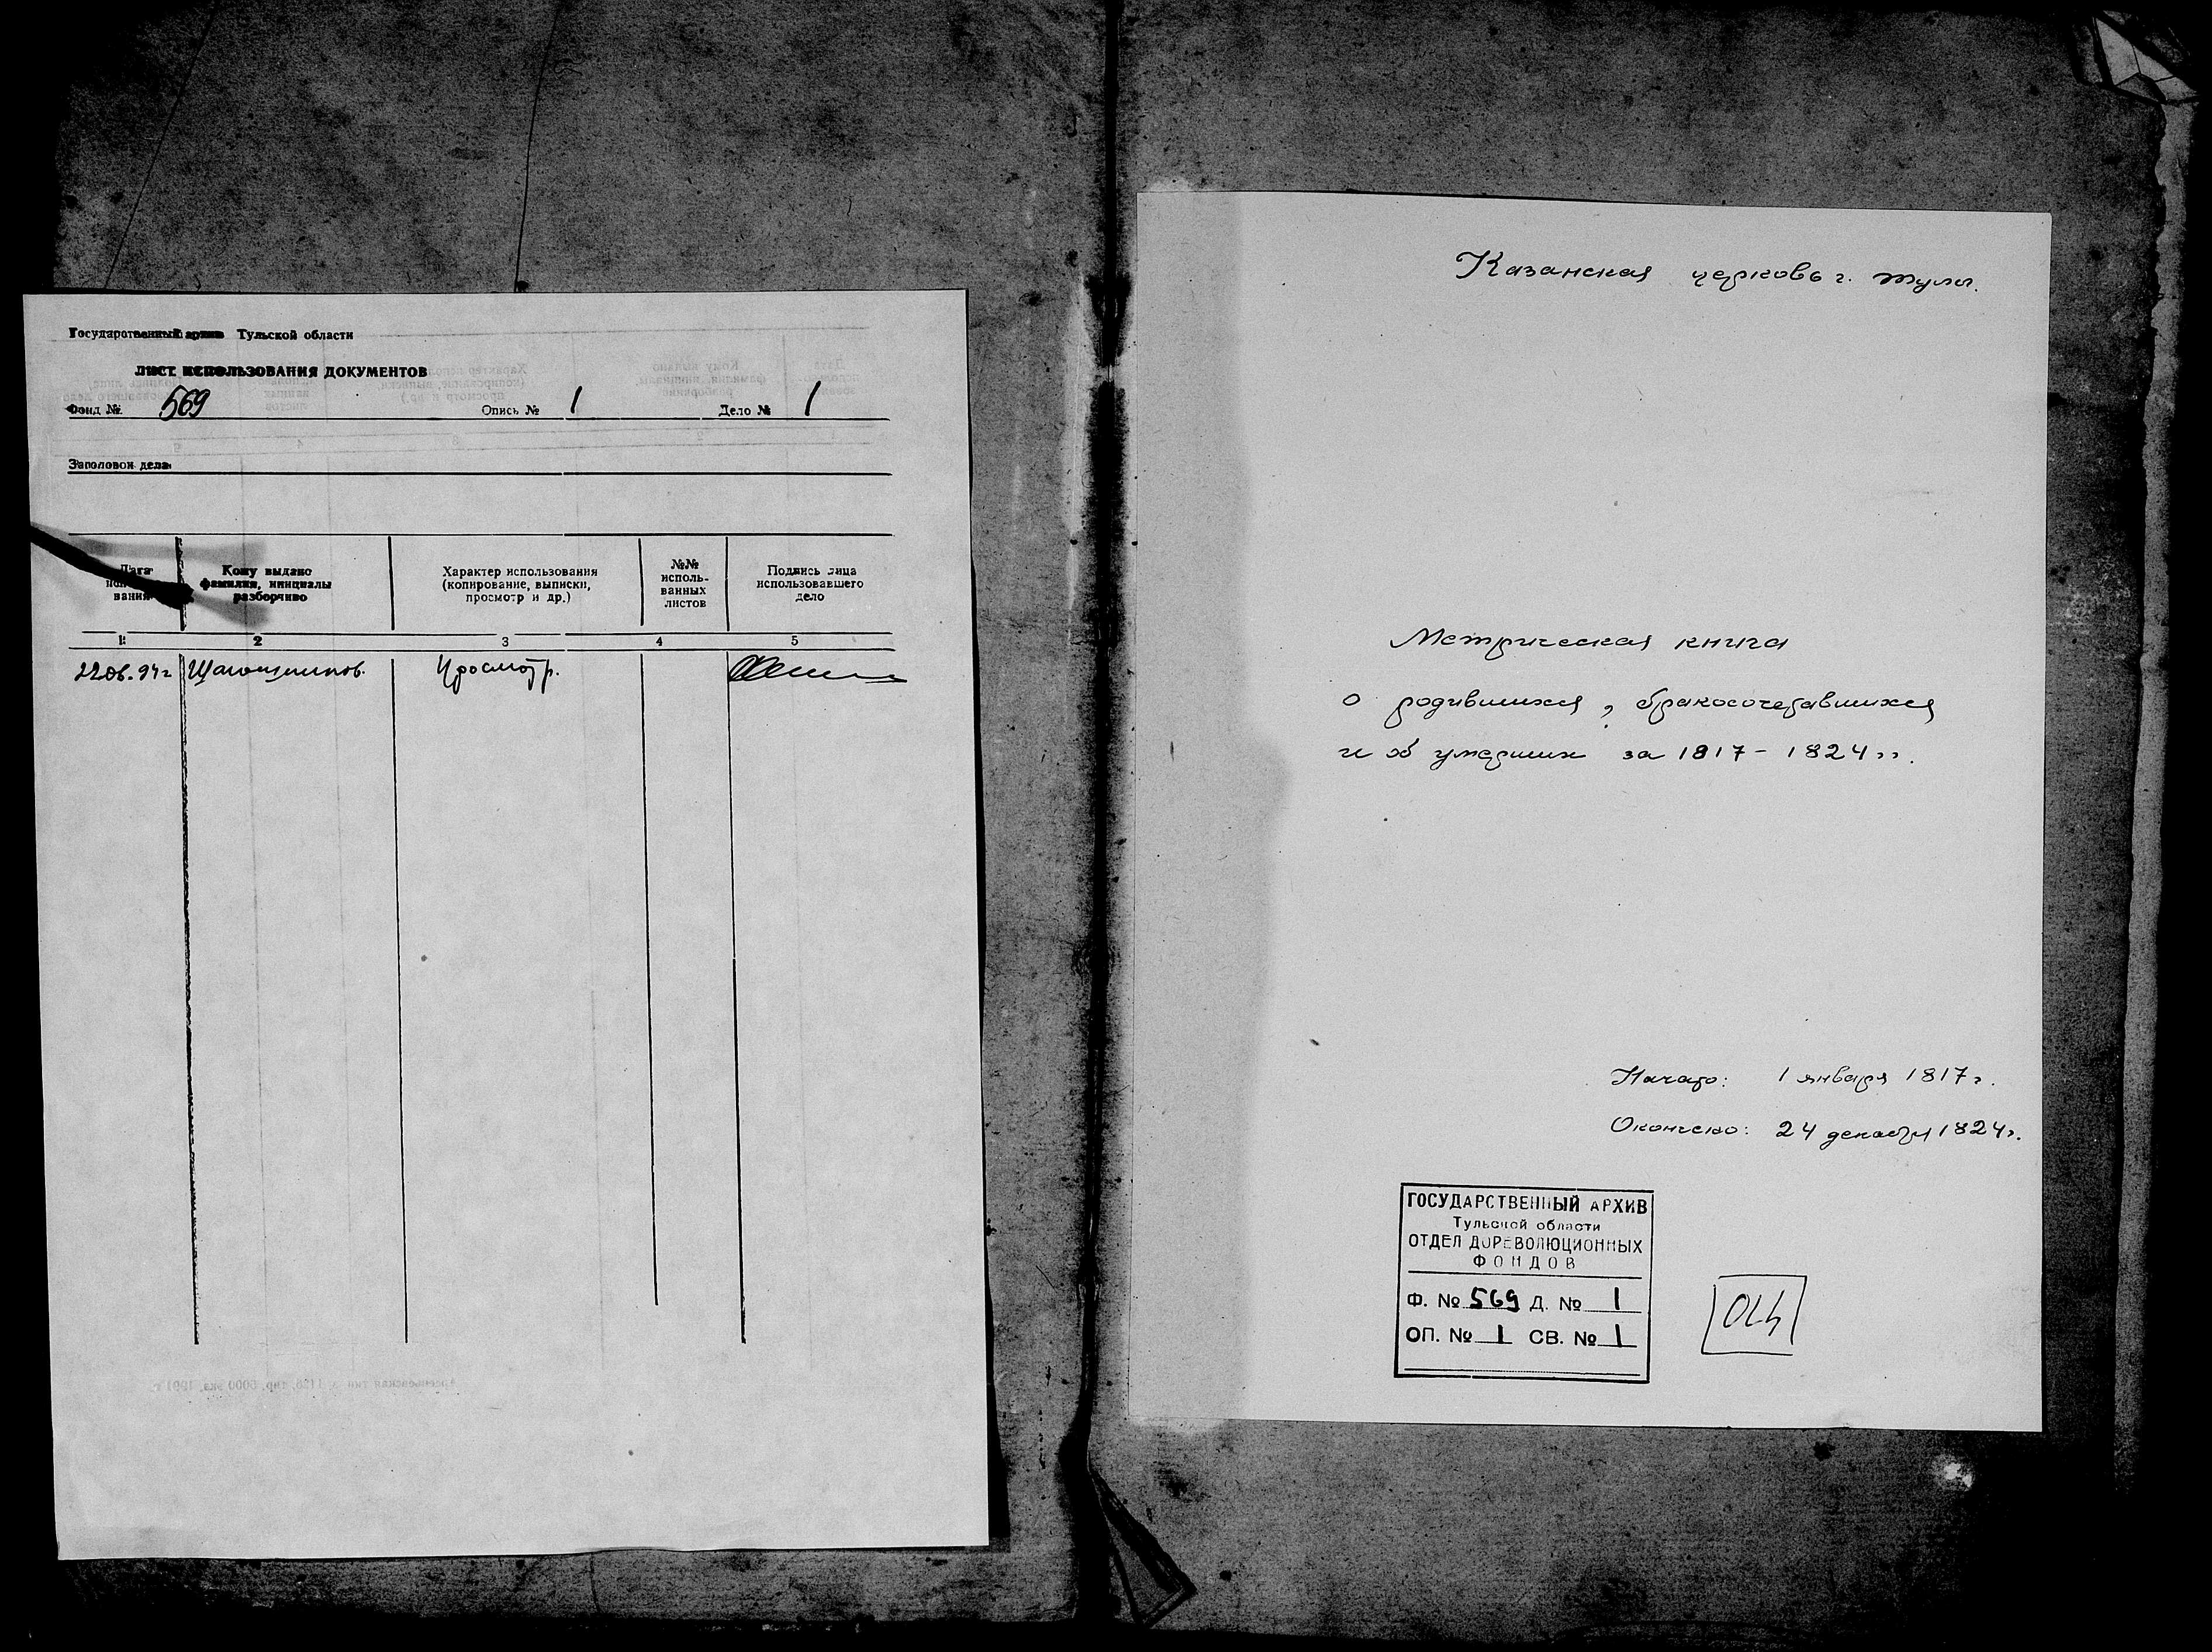 Государственный архив Тульской области
ЛИСТ ИСПОЛЬЗОВАНИЯ ДОКУМЕНТОВ
Фонд № 569 Опись № 1 Дело № 1
Заголовок дела
Дата вания
Кому выдано фамилия, инициалы разборчиво
Характер использования (копирование, выписки, просмотр и др.)
№№ исполь- ванных листов
Подпись лица использовавшего дело
1 2 3 4 5
22.06.94г Просмотр.
Казанская церковь г. Тулы.
Метрическая книга
о родившихся, бракосочетавшихся
и об умерших за 1817 - 1824 гг.
Начато: 1 января 1817 г.
Окончено: 24 декабря 1824 г.
ГОСУДАРСТВЕННЫЙ АРХИВ
Тульской области
ОТДЕЛ ДОРЕВОЛЮЦИОННЫХ
ФОНДОВ
Ф. № 569 Д. № 1
ОП. № 1 СВ. № 1
ОЦ